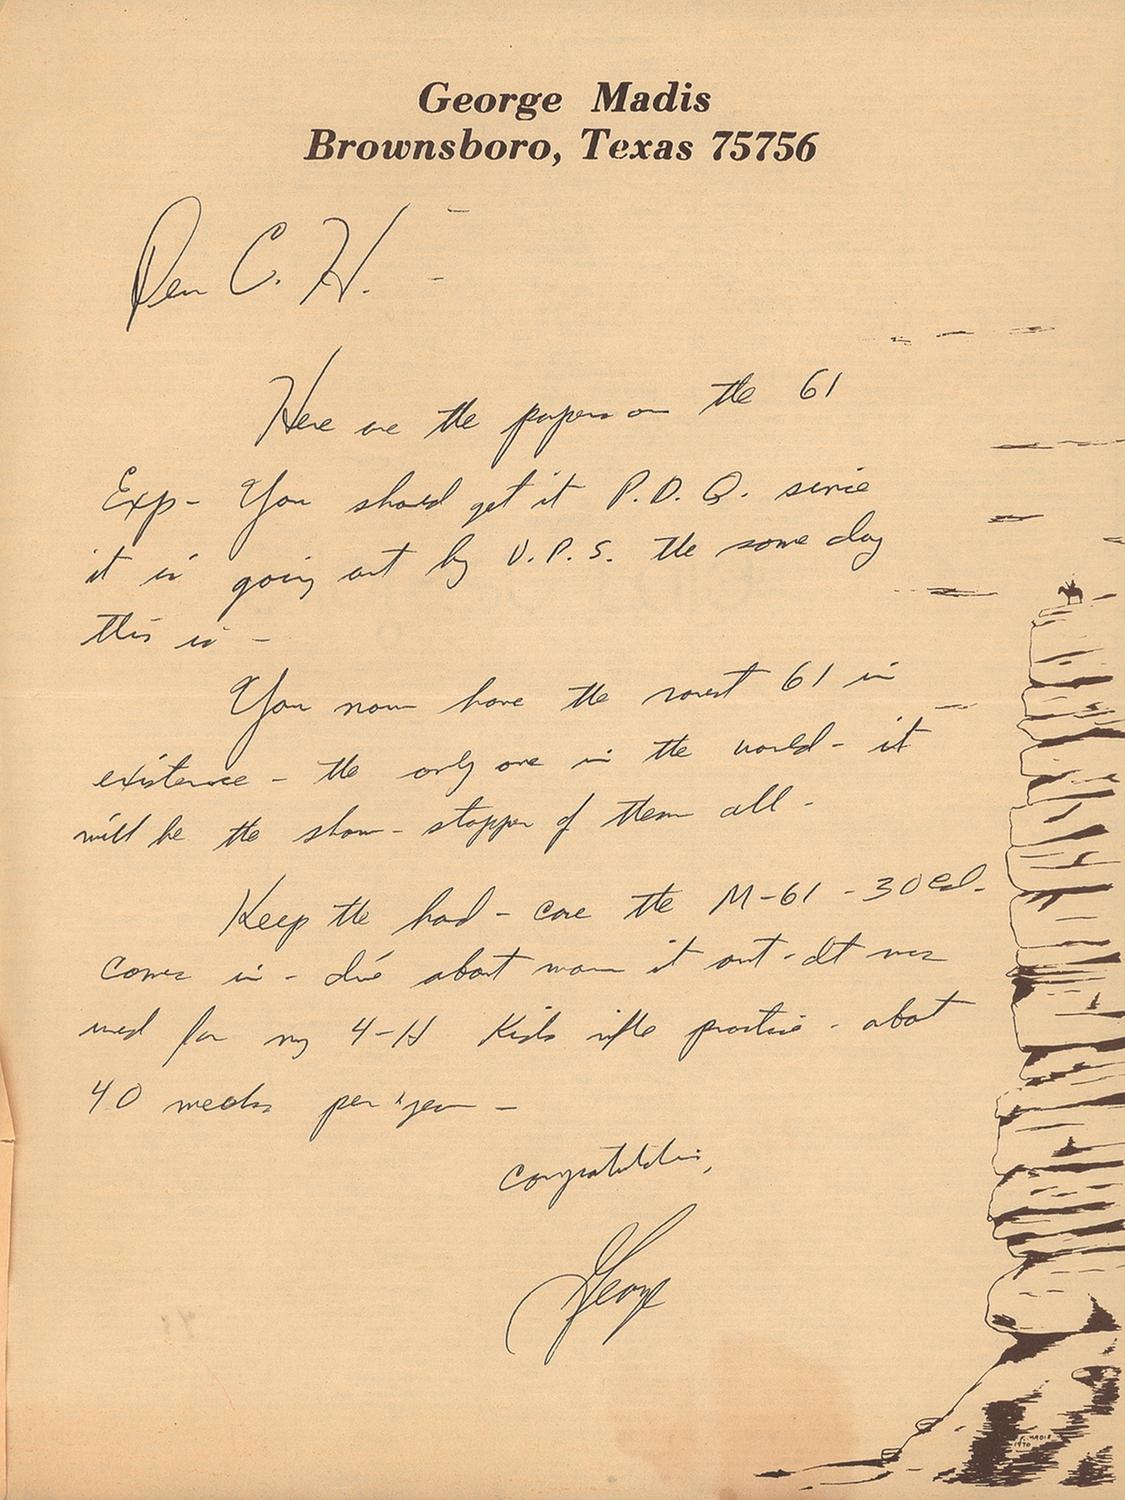 George Madis
Brownsboro, Texas 75756
Dear C. H. -
Here are the papers on the 61
Exp - You should get it P.D.Q. since
it is going out by U.P.S. the same day
this is -
You now have the rarest 61 in
existence - the only one in the world - it
will be the show - stopper of them all -
Keep the hard - case the M-61 - 30 cal.
comes in - I've about worn it out - It was
used for my 4-H Kids rifle practice - about
40 weeks per year -
Congratulations,
George
MADIS
1970